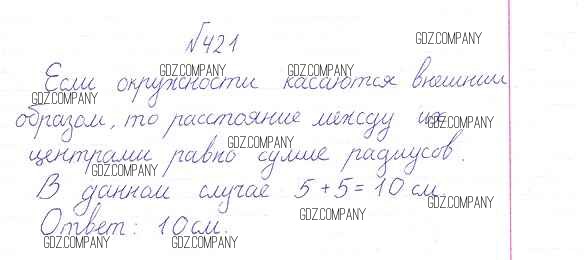 №421
GDZ.COMPANY
Если окружности касаются внешним
GDZ.COMPANY GDZ.COMPANY
GDZ.COMPANY
образом, то расстояние между их
GDZ.COMPANY
GDZ.COMPANY
центрами равно сумме радиусов.
GDZ.COMPANY
В данном случае 5+5=10 см
GDZ.COMPANY
Ответ: 10 см.
GDZ.COMPANY GDZ.COMPANY